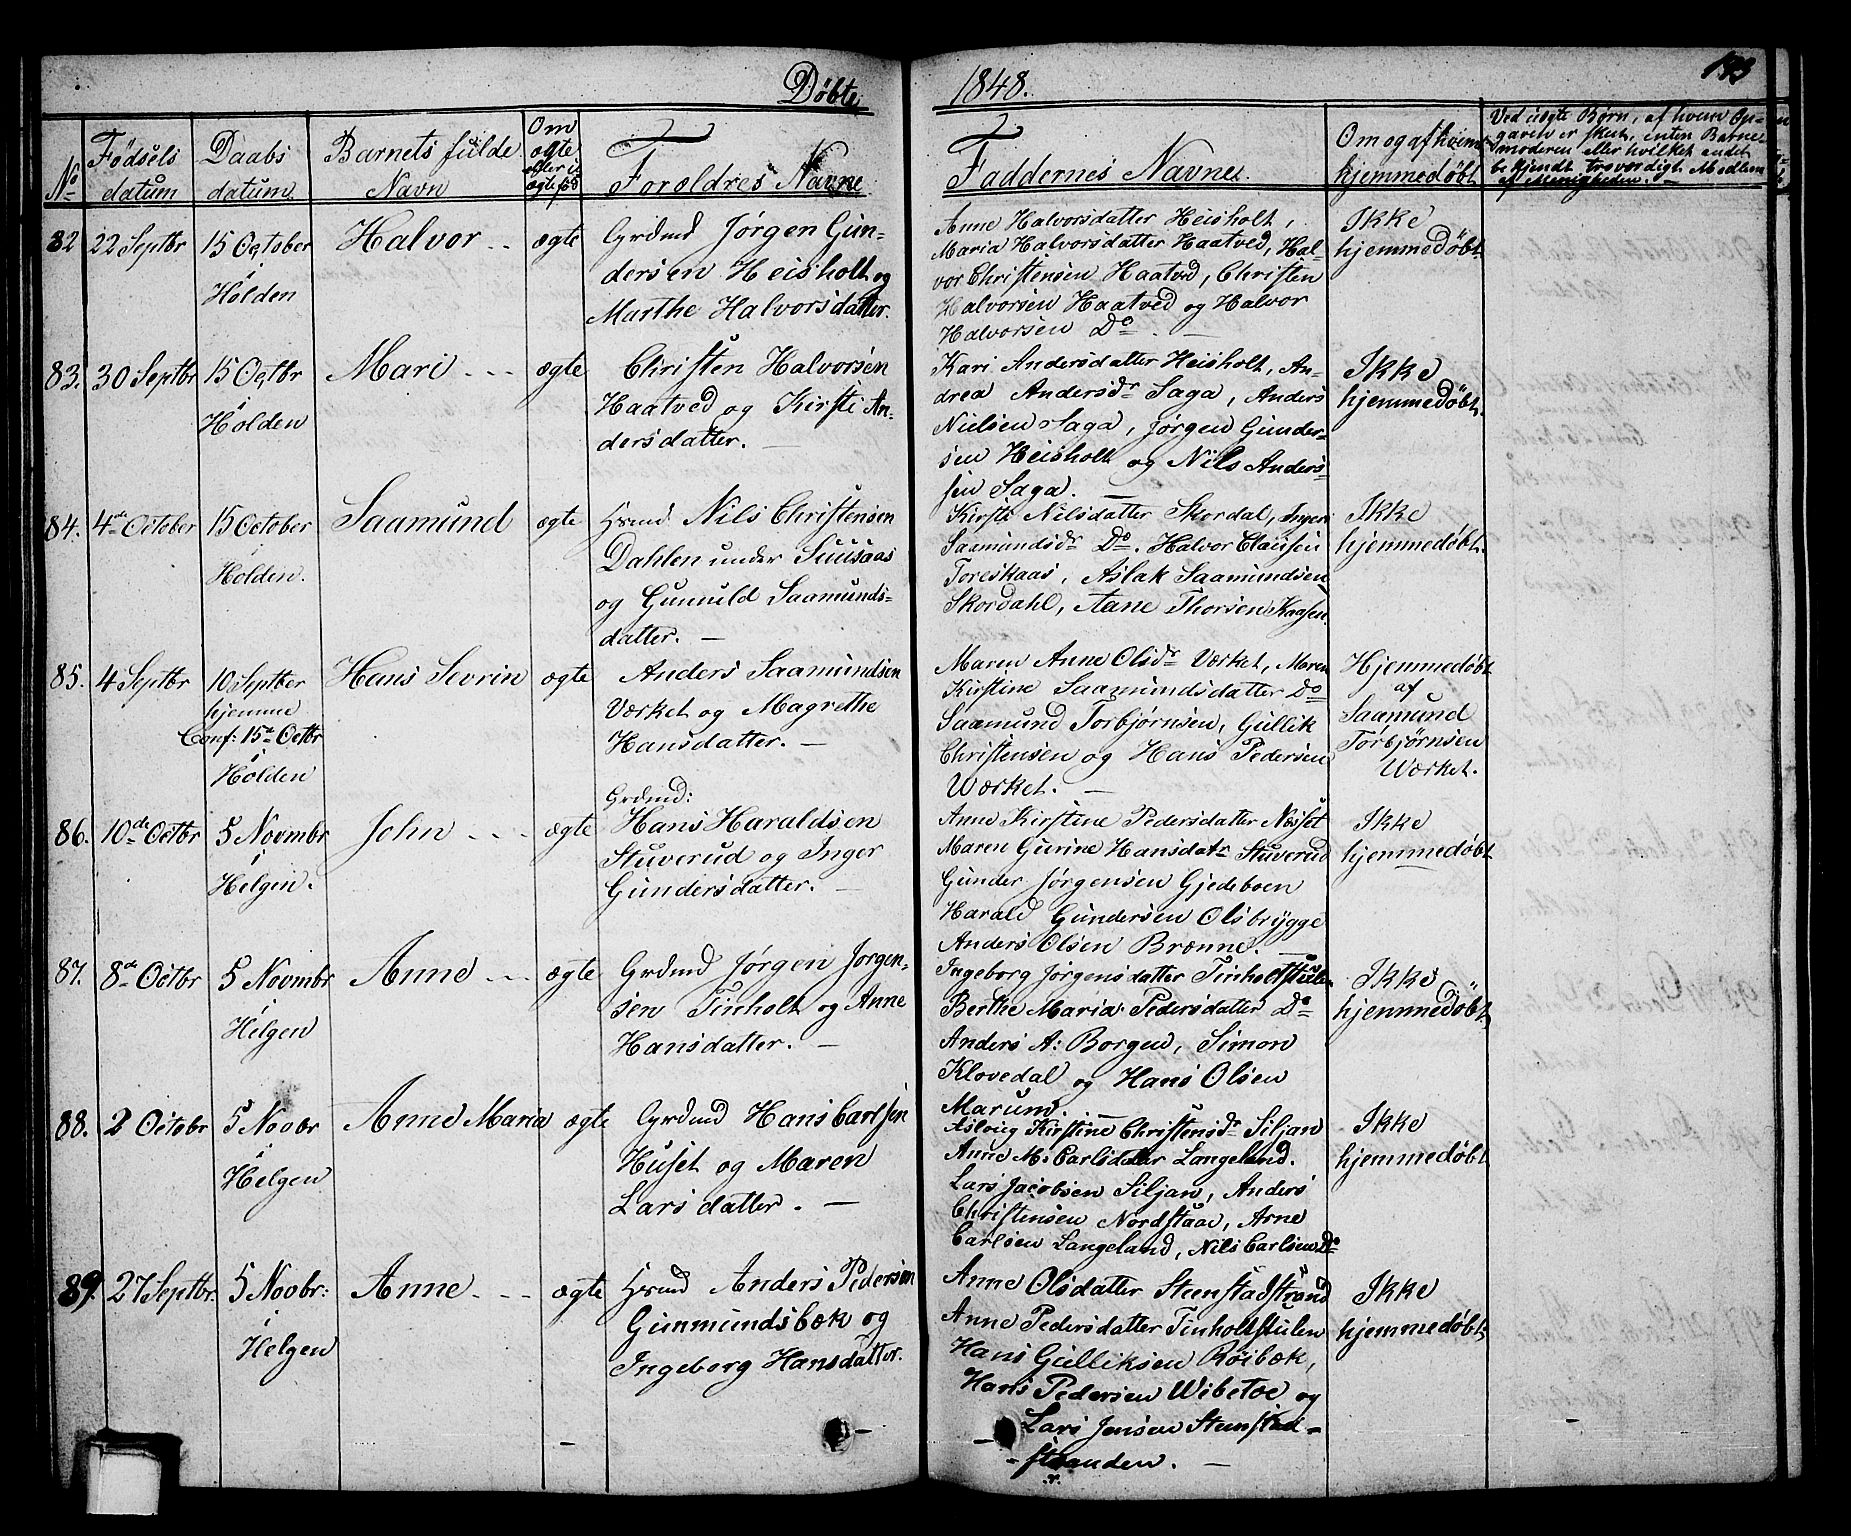 Døbte 1848.
143
No
Fødsels datum
Daabs datum
Barnets fulde Navn
Om ægte eller uægte fød
Forældres Navne
Faddernes Navne
Om og af hvem hjemmedøbt
Ved uægte Børn, af hvem Op-
gaven er skeet, enten Barne-
moderen eller hvilket andet
bekjendt troværdigt Medlem
af Menigheden.
82
22 Septbr
15 October
i
Holden
Halvor
ægte
Grdmd Jørgen Gun-
dersen Heisholt og
Marthe Halvorsdatter.
Anne Halvorsdatter Heisholt,
Maria Halvorsdatter Haatved, Hal-
vor Christensen Haatved, Christen
Halvorsen Haatved og Halvor
Halvorsen Do.
Ikke
hjemmedøbt
83.
30 Septbr
15 Octbr
i
Holden
Mari
ægte
Christen Halvorsen
Haatved og Kirsti An-
dersdatter.
Kari Andersdatter Heisholt, An-
drea Andersdr Saga, Anders
Nielsen Saga, Jørgen Gunder-
sen Heisholt og Nils Anders-
sen Saga.
Ikke
hjemmedøbt.
84.
4de October
15 October
i
Holden.
Saamund
ægte
Hsmd Nils Christensen
Dahlen under Suusaas
og Gunuld Saamunds-
datter.
Kirsti Nilsdatter Skordal, Ingeri
Saamundsdr Do. Halvor Clausen
Toreskaas, Aslak Saamundsen
Skordahl, Aane Thorsen Kaasen.
Ikke
hjemmedøbt.
85.
4 Septbr
10 Septber
hjemme
Conf: 15de Octbr
i
Holden
Hans Sevrin
ægte
Anders Saamundsen
Værket og Magrethe
Hansdatter.
Maren Anne Olsdr Værket, Maren
Kirstine Saamundsdatter Do
Saamund Torbjørnsen, Gullik
Christensen og Hans Pedersen
Værket.
Hjemmedøbt
af
Saamund
Torbjørnsen
Værket.
86.
10de Octbr
5 Novmbr
i
Helgen.
John
ægte
Grdmd:
Hans Haraldsen
Stuverud og Inger
Gundersdatter.
Anne Kirstine Pedersdatter Næset
Maren Gurine Hansdatr Stuverud
Gunder Jørgensen Gjedeboen
Harald Gundersen Olsbrygge
Anders Olsen Brænne.
Ikke
hjemmedøbt
87.
8de Octbr
5 Novmbr
i
Helgen
Anne
ægte
Grdmd Jørgen Jorgen-
sen Tinholt og Anne
Hansdatter.
Ingeborg Jørgensdatter Tinholtstulen
Berthe Maria Pedersdatter Do
Anders A: Borgen, Simon
Klovedal og Hans Olsen
Marum.
Ikke
hjemmedøbt
88.
2 Octobr
5 Novbr
i
Helgen
Anne Maria
ægte
Grdmd Hans Carlsen
Huset og Maren
Larsdatter.
Aslaug Kirstine Christensdr Siljan
Anne M. Carlsdatter Langeland.
Lars Jacobsen Siljan, Anders
Christensen Nordstaae, Arne
Carlsen Langeland, Nils Carlsen Do
Ikke
hjemmedøbt
89
27 Septbr.
5 Novbr:
i
Helgen
Anne
ægte
Hsmd Anders Pedersen
Gunmundsbæk og
Ingeborg Hansdatter.
Anne Olsdatter Stenstadstrand
Anne Pedersdatter Tinholtstulen
Hans Gulliksen Röibæk,
Hans Pedersen Wibetoe og
Lars Jensen Stenstad-
stranden.
Ikke
hjemmedøbt